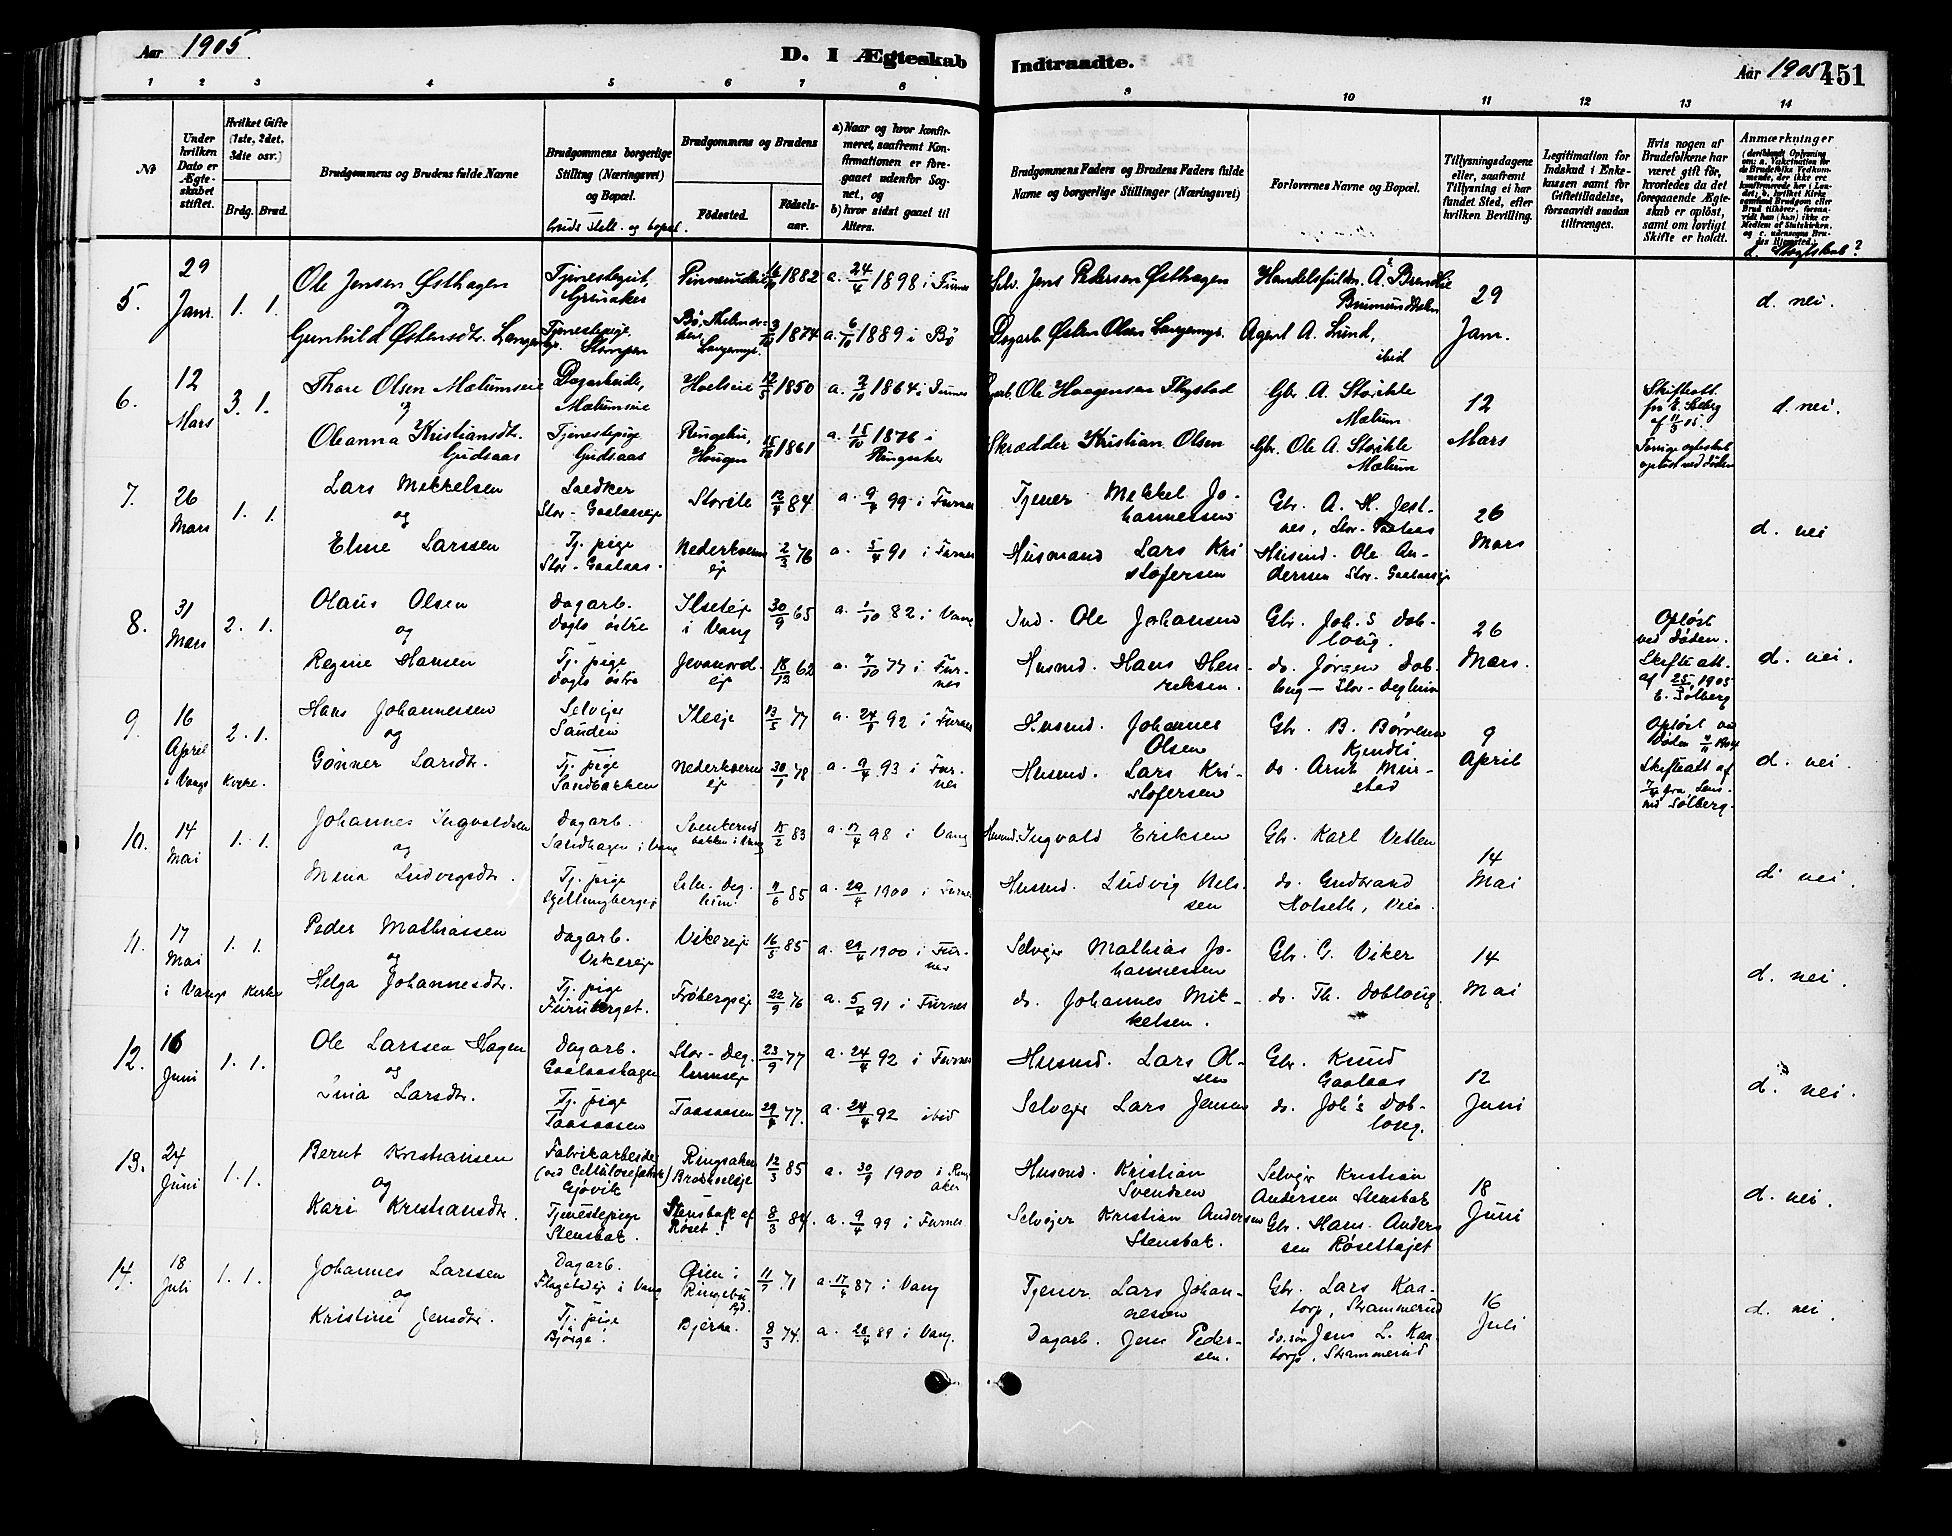 Aar 1905
D. I Ægteskab Indtraadte.
Aar 1905
451
1 2 3 4 5 6 7 8 9 10 11 12 13 14
No
Under hvilken Dato er Ægteskabet stiftet.
Hvilket Gifte (1ste, 2det, 3die osv.)
Brdg. Brud.
Brudgommens og Brudens fulde Navne
Brudgommens borgerlige Stilling (Næringsvei) og Bopæl.
bruds still. og bopæl.
Brudgommens og Brudens
Fødested.
Fødselsaar.
a) Naar og hvor konfirmeret, saafremt Konfirmationen er foregaaet udenfor Sognet, og
b) hvor sidst gaaet til Alters.
Brudgommens Faders og Brudens Faders fulde Navne og borgerlige Stillinger (Næringsvei)
Forlovernes Navne og Bopæl.
Tillysningsdagene eller, saafremt Tillysning ei har fundet Sted, efter hvilken Bevilling.
Legitimation for Indskud i Enkekassen samt for Giftetilladelse, forsaavidt saadan tiltrænges.
Hvis nogen af Brudefolkene har været gift før, hvorledes da det foregaaende Ægteskab er opløst, samt om lovligt Skifte er holdt.
Anmærkninger
d. Slegtskab?
5. 29 Janr. 1. 1. Ole Jensen Østhagen Tjenestegut, 16 1882 a. 24/4 1898 i Furnes Selv. Jens Pedersen Østhagen Handelsfuldm. A. Brendlie Brumunddalen 29 Jan. d. nei.
og
Gunhild Østensdtr. Langemyr Tjenestepige Stampen Bø, Thelemarken Langemyr. 3/10 1874 a. 6/10 1889 i Bø Dagarb. Østen Olsen Langemyr Agent A. Lund, ibid
6. 12 Mars 3. 1. Thore Olsen Mælumseie Dagarbeide, Mælumseie Hoelseie 12/5 1850 a. 2/10 1864 i Furnes Dgarb. Ole Haagensen Thystad Gbr. A. Storihle Mælum 12 Mars Skifteatt. fra E. Solberg af 11/3 05. d. nei.
og
Oleanna Kristiansdtr. Gudsaas Tjenestepige Gudsaas Ringebu, Haugen 15/12 1861 a. 15/10 1876 i Ringsaker Skrædder Kristian Olsen Gbr. Ole A. Storihle Mælum Forrige egteskab opløst ved døden
7. 26 Mars 1. 1. Lars Mikkelsen Stor-Gaalaaseje Storihle 12/4 84 a. 9/4 99 i Furnes Tjener Mekkel Johannessen Gbr. A. H. Jestnes, Stor-Gaalaas 26 Mars d. nei
og
Eline Larssen Tj. pige Stor-Gaalaas. Nederkvern ej 2/3 76 a. 5/4 91 i Furnes Husmand Lars Kristofersen Husmd. Ole Andersen Stor-Gaalaasej
8. 31 Mars 2. 1. Olaus Olsen Dagarb. Doglo østre Ilseteje i Vang 30/9 65 a. 1/10 82 i Vang Ind. Ole Johansen Gbr. Joh.s Dobloug. 26 Mars. Opløst ved døden. d. nei.
og
Regine Hansen Tj. pige Doglo østre Jevanord ej 18/12 62 a. 7/10 77 i Furnes Husmd. Hans Henriksen. do. Jørgen Doblong – Stor-Deglum Skifteatt. af 25/3 1905 E. Sølberg
9. 16 April i Vangs Kirke. 2. 1. Hans Johannessen Selvejer Sandvin Ilseje 13/5 77 a. 24/4 92 i Furnes Husmd. Johannes Olsen Gbr. B. Børresen Kjendli 9 April Opløst ved Døden 1904 d. nei.
og
Gønner Larsdtr. Tj. pige Sandbakken Nederkvern ej 30/1 78 a. 9/4 93 i Furnes Husmd. Lars Kristofersen do. Arnt Mørstad Skifteatt af 7/4 fra Lensmd Sølberg.
10. 14 Mai 1. 1. Johannes Ingvaldsen Dagarb. Sandhagen i Vang Svenkerud bakken i Vang 15/2 83 a. 17/4 98 i Vang Husmd. Ingvald Eriksen Gbr. Karl Vetlen 14 Mai d. nei.
og
Mina Ludvigsdtr. Tj. pige Gjetlungbergej Lille-Deglum 11/6 85 a. 29/4 1900 i Furnes Husmd. Ludvig Nelssen do. Gudbrand Holseth, Veia.
11. 17 Mai i Vangs Kirke 1. 1. Peder Mathiassen Dagarb. Vikereje Vikereje 16/5 85 a. 29/4 1900 i Furnes Selvejer Mathias Johannessen Gbr. G. Viker 14 Mai d. nei.
og
Helga Johannesdtr. Tj. pige Furuberget. Frøbergseje 22/9 76 a. 5/4 91 i Furnes do. Johannes Mikkelsen. do. Th. Dobloug.
12. 16 Juni 1. 1. Ole Larssen Hagen Dagarb. Gaalaashagen Stor-Deglumseje 23/9 77 a. 24/4 92 i Furnes Husmd. Lars Olsen Gbr. Knud Gaalaas 12 Juni d. nei.
og
Lina Larsdtr. Tj. pige Taasaasen Taasaasen 29/4 77. a. 24/4 92 ibid Selvejer Lars Jensen do. Joh's Doblong.
13. 24 Juni 1. 1. Bernt Kristiansen Fabrikarbeider (ved Cellulosefabrik) Gjøvik Ringsaker 12/3 85 a. 30/9 1900 i Ringsaker Husmd. Kristian Svendsen Selvejer Kristian Andersen Stensbak 18 Juni d. nei.
og
Kari Kristiansdtr. Tjenestepige Stensbak. Stensbak af Røset. 8/3 84. a. 9/4 99 i Furnes. Selvejer Kristian Andersen Stensbak. Gbr. Hans Andersen Røsettajet
14. 18 Juli 1. 1. Johannes Larssen Dagarb. Flagstadej i Vang Øien i Ringebu 11/7 71 a. 17/4 87 i Vang Tjener Lars Johannessen Gbr. Lars Kaatorp, Strammerud 16 Juli d. nei.
og
Kristine Jensdtr. Tj. pige Bjørge. Bjerke. 8/3 74. a. 28/4 89 i Vang. Dagarb. Jens Pedersen. do. søn Jens L. Kaatorp, Strammerud